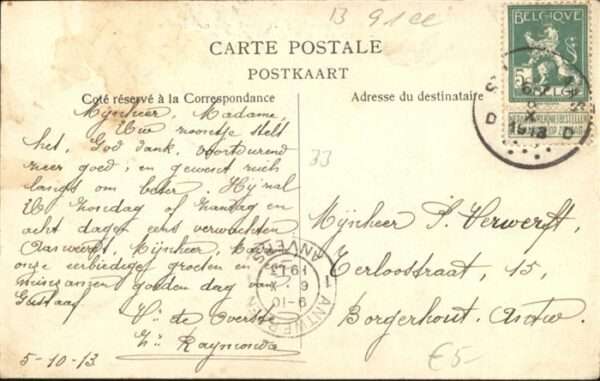 B 91 cc
CARTE POSTALE
POSTKAART
Coté réservé à la Correspondance
Adresse du destinataire
BELGIQUE
5
BELGIË
1913
D D
Mijnheer, Madame,
Uw zoontje stelt
het, God dank, voortdurend
zeer goed, en geneest zich
langs om beter. Hij zal
U Zondag of Maandag en
acht dagen eens verwachten
Aanveerdt, Mijnheer,
onze eerbiedige groeten en
goeden dag van
Gustaaf
de Overste
Zr Raymonda
5-10-13
33
1 ANTWERPEN
ANVERS
9-10
6 X
1913
Mijnheer S. Verwerft,
Terloostraat, 15,
Borgerhout. Antw.
€5-